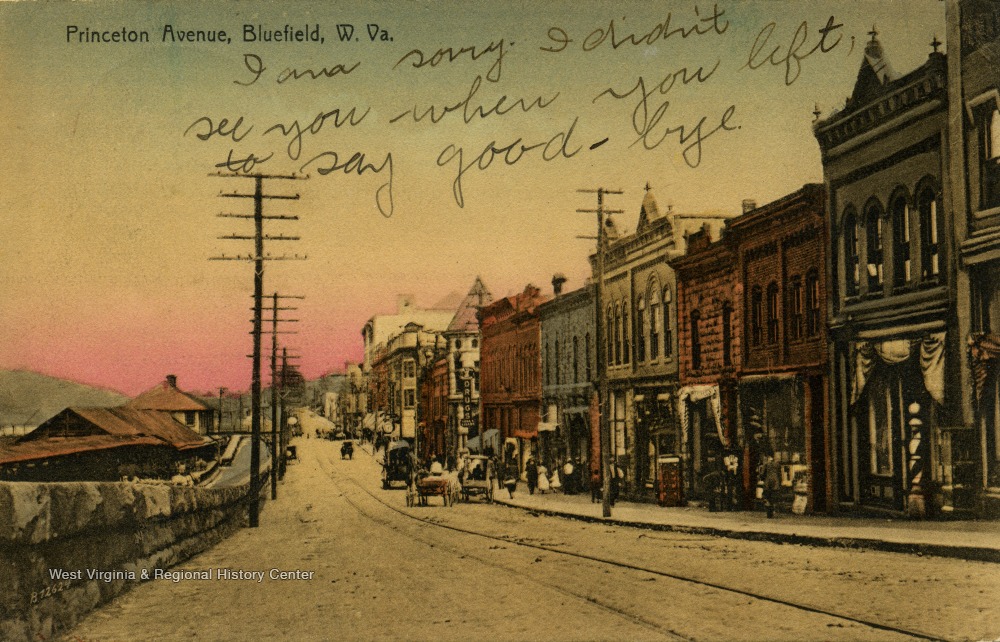 Princeton Avenue, Bluefield, W. Va.
I am sorry. I didn't
see you when you left,
to say good-bye.
West Virginia & Regional History Center